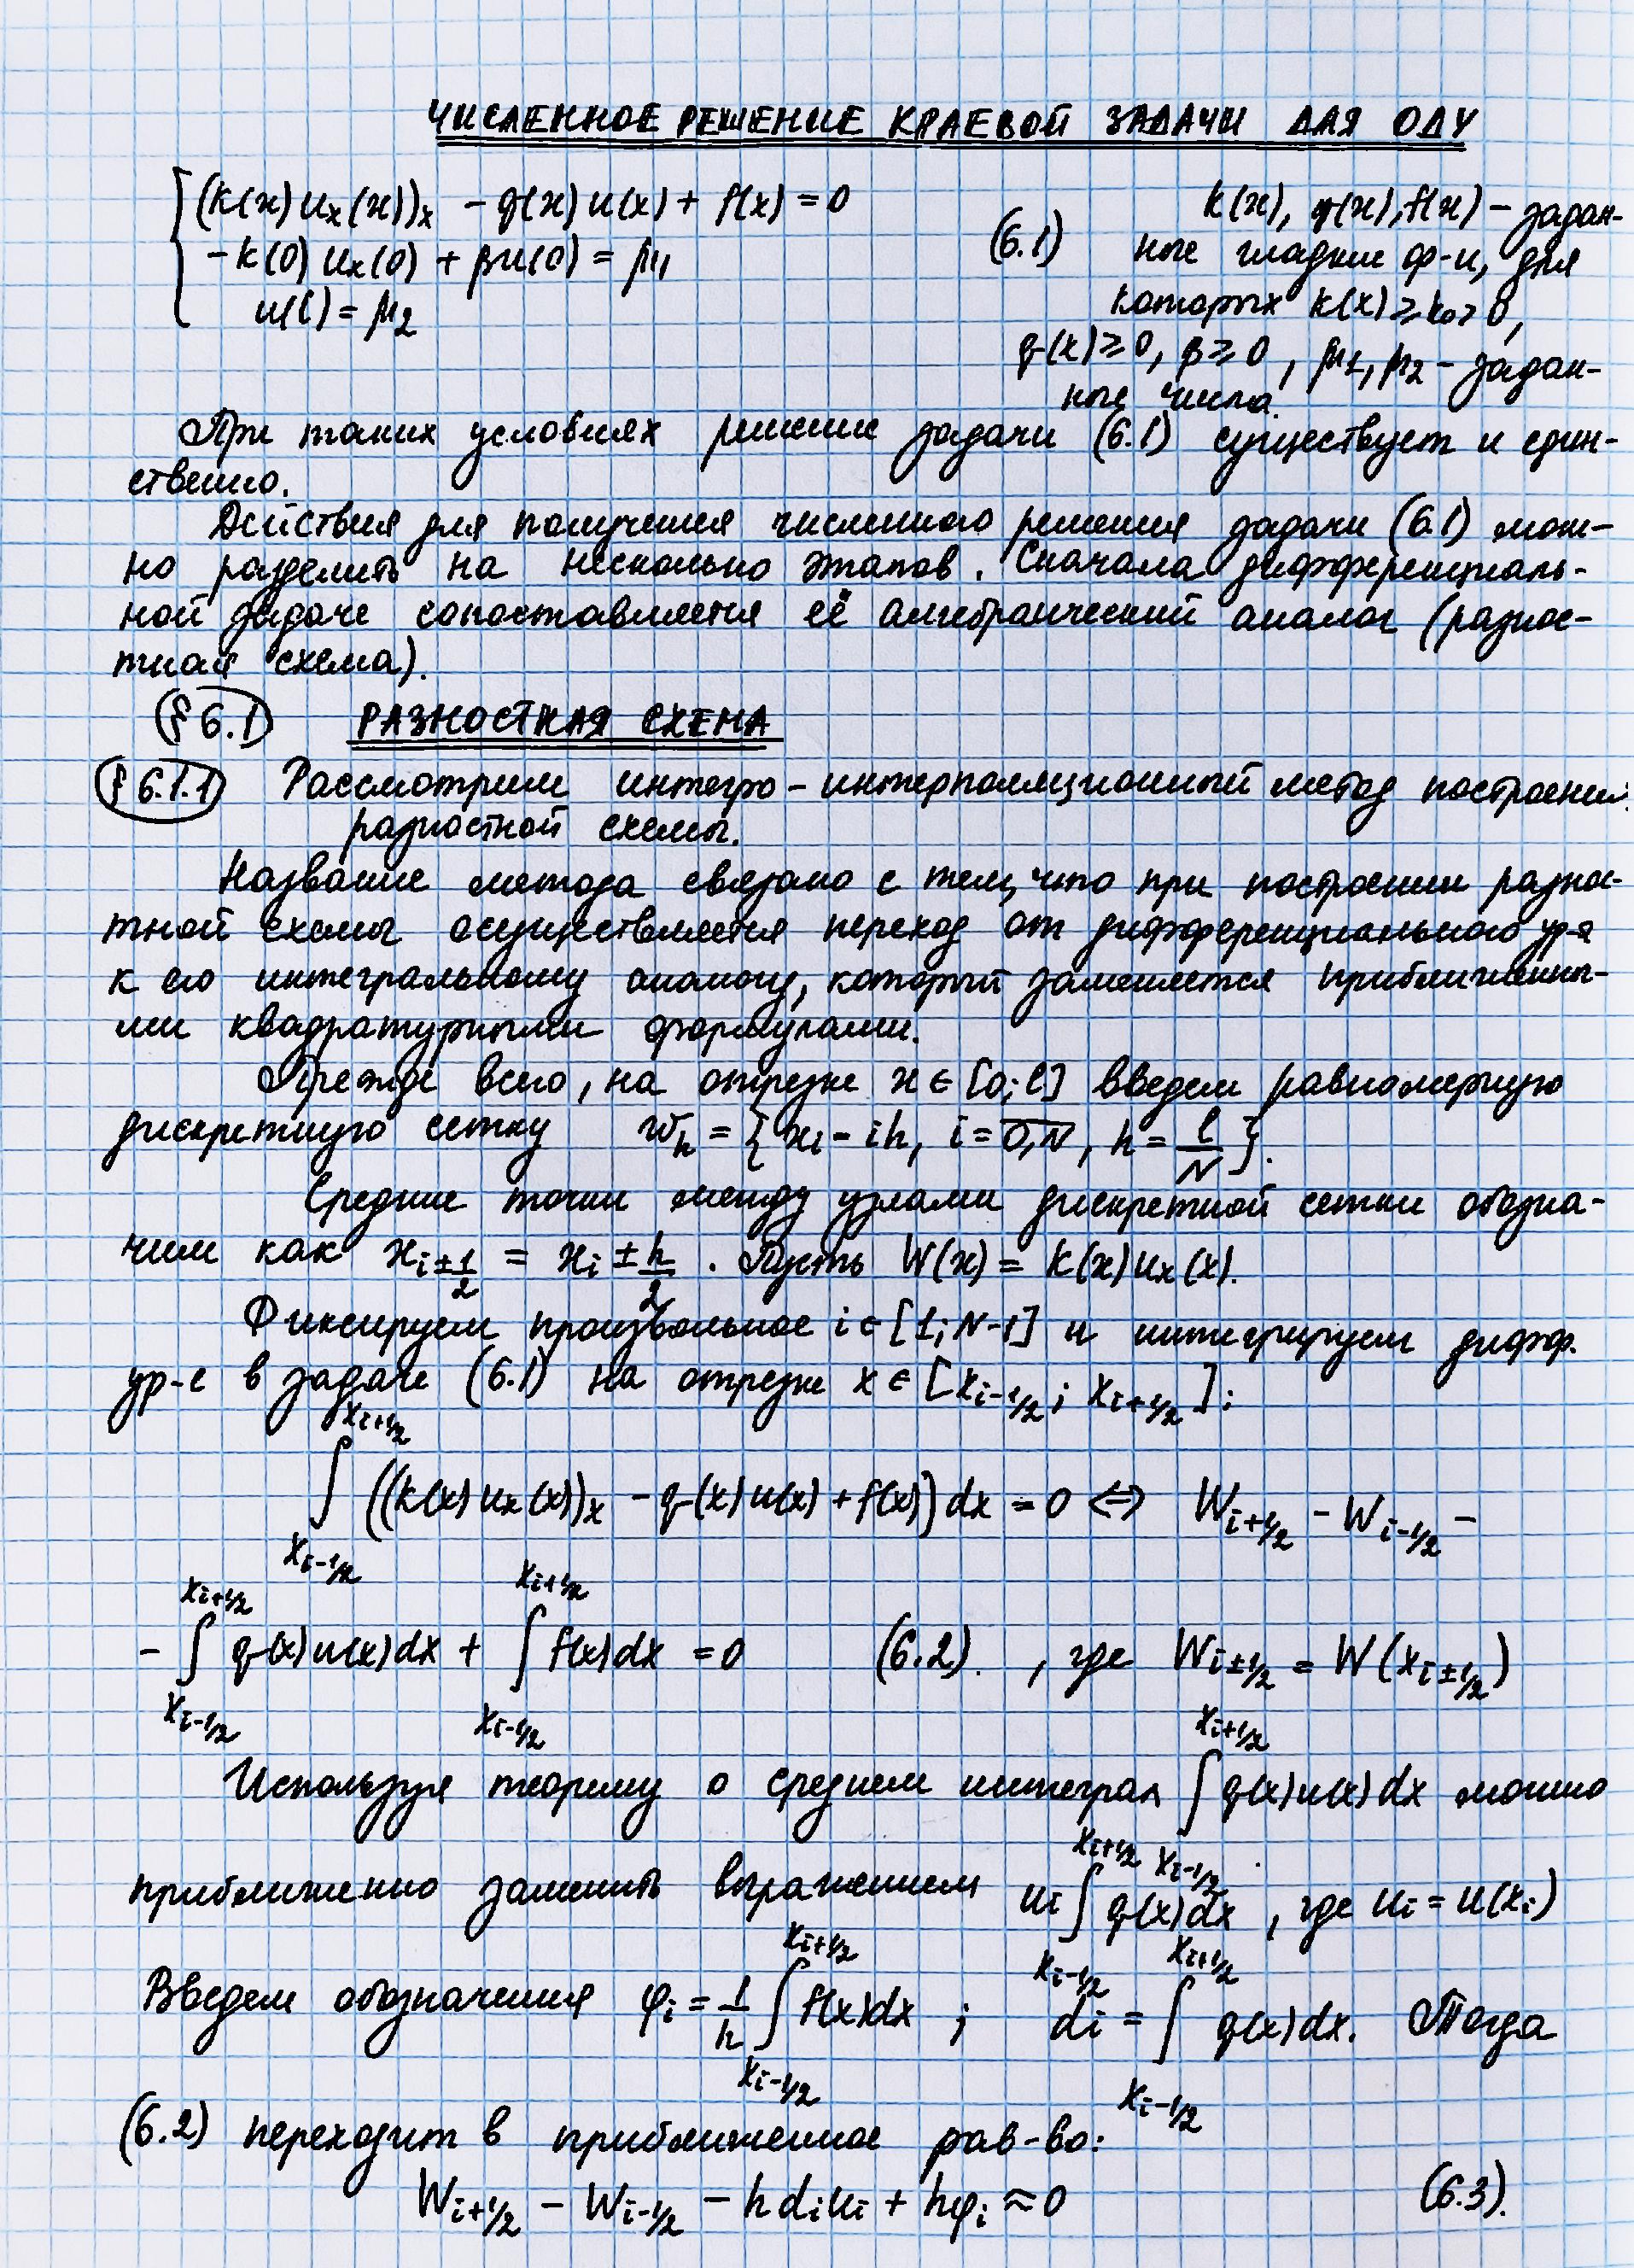 ЧИСЛЕННОЕ РЕШЕНИЕ КРАЕВОЙ ЗАДАЧИ ДЛЯ ОДУ
(k(x)uₓ(x))ₓ - q(x)u(x) + f(x) = 0
-k(0)uₓ(0) + βu(0) = μ₁
u(l) = μ₂
(6.1)
k(x), q(x), f(x) – задан-
ные гладкие ф-и, для
которых k(x) ≥ k₀ > 0,
q(x) ≥ 0, β ≥ 0, μ₁, μ₂ – задан-
ные числа.
При таких условиях решение задачи (6.1) существует и един-
ственно.
Действия для получения численного решения задачи (6.1) мож-
но разделить на несколько этапов. Сначала дифференциаль-
ной задаче сопоставляется её алгебраический аналог (разнос-
тная схема).
§ 6.1 РАЗНОСТНАЯ СХЕМА
§ 6.1.1 Рассмотрим интегро-интерполяционный метод построения
разностной схемы.
Название метода связано с тем, что при построении разнос-
тной схемы осуществляется переход от дифференциального ур-я
к его интегральному аналогу, который заменяется приближенны-
ми квадратурными формулами.
Прежде всего, на отрезке x ∈ [0; l] введем равномерную
дискретную сетку w̄ₕ = { xᵢ - ih, i = 0,N, h = l/N }.
Средние точки между узлами дискретной сетки обозна-
чим как x_{i±1/2} = xᵢ ± h/2. Пусть W(x) = k(x)uₓ(x).
Фиксируем произвольное i ∈ [1; N-1] и интегрируем дифф.
ур-е в задаче (6.1) на отрезке x ∈ [x_{i-1/2}; x_{i+1/2}]:
∫_{x_{i-1/2}}^{x_{i+1/2}} ((k(x)uₓ(x))ₓ - q(x)u(x) + f(x)) dx = 0 ⇔ W_{i+1/2} - W_{i-1/2} -
- ∫_{x_{i-1/2}}^{x_{i+1/2}} q(x)u(x)dx + ∫_{x_{i-1/2}}^{x_{i+1/2}} f(x)dx = 0 (6.2). , где W_{i±1/2} = W(x_{i±1/2})
Используя теорему о среднем интеграл ∫_{x_{i-1/2}}^{x_{i+1/2}} q(x)u(x)dx можно
приближенно заменить выражением uᵢ ∫_{x_{i-1/2}}^{x_{i+1/2}} q(x)dx, где uᵢ = u(xᵢ)
Введем обозначения φᵢ = 1/h ∫_{x_{i-1/2}}^{x_{i+1/2}} f(x)dx ; dᵢ = ∫_{x_{i-1/2}}^{x_{i+1/2}} q(x)dx. Тогда
(6.2) переходит в приближенное рав-во:
W_{i+1/2} - W_{i-1/2} - hdᵢuᵢ + hφᵢ ≈ 0 (6.3).